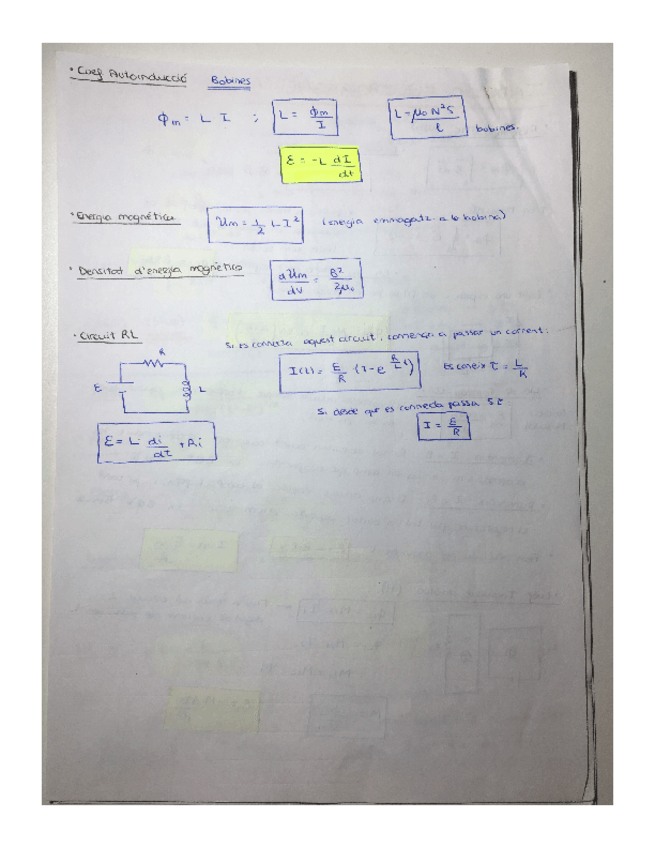 · Coef Autoinducció Bobines
ϕm = L I ; L = ϕm / I L = μ0 N²S / l bobines.
ε = -L dI/dt
· Energia magnética Um = 1/2 L I² (energia enmagatz. a la bobina)
· Densitat d'energia magnético dUm/dV = B²/2μ0
· Circuit RL Si es connecta aquest circuit, comença a passar un corrent:
R
ε L
I(t) = E/R · (1-e^(R/L t)) Es coneix τ = L/R
Si desde que es connecta passa 5τ
I = E/R
ε = L · di/dt + Ri